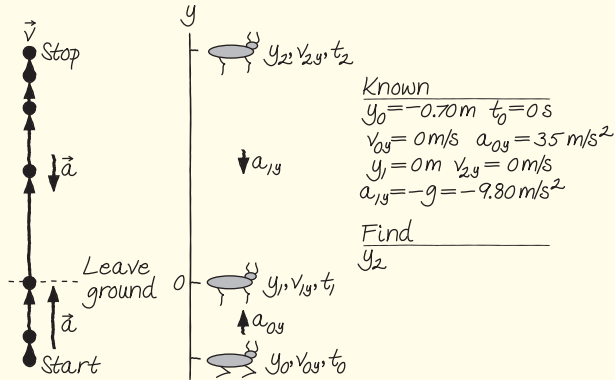 v⃗
Stop
a⃗
Leave
ground
a⃗
Start
y
0
y₂, v₂y, t₂
a₁y
y₁, v₁y, t₁
a₀y
y₀, v₀y, t₀
Known
y₀ = −0.70 m t₀ = 0 s
v₀y = 0 m/s a₀y = 35 m/s²
y₁ = 0 m v₂y = 0 m/s
a₁y = −g = −9.80 m/s²
Find
y₂